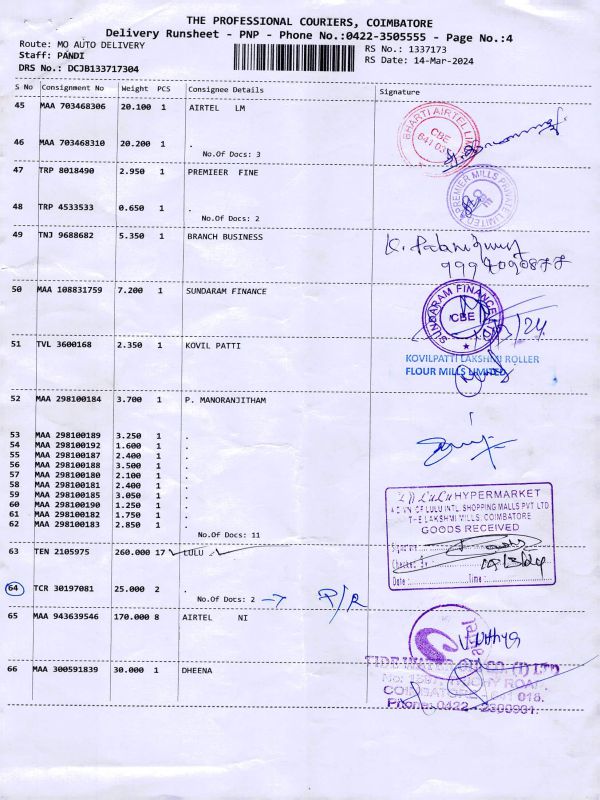 THE PROFESSIONAL COURIERS, COIMBATORE
Delivery Runsheet - PNP - Phone No.:0422-3505555 - Page No.:4
Route: MO AUTO DELIVERY
RS No.: 1337173
Staff: PANDI
RS Date: 14-Mar-2024
DRS No.: DCJB133717304
S No Consignment No Weight PCS Consignee Details Signature
45 MAA 703468306 20.100 1 AIRTEL LM
BHARTI AIRTEL
CBE
46 MAA 703468310 20.200 1 .
No.Of Docs: 3
47 TRP 8018490 2.950 1 PREMIEER FINE
PREMIER MILLS PRIVATE LIMITED
48 TRP 4533533 0.650 1 .
No.Of Docs: 2
49 TNJ 9688682 5.350 1 BRANCH BUSINESS
50 MAA 108831759 7.200 1 SUNDARAM FINANCE
SUNDARAM FINANCE LTD
CBE
51 TVL 3600168 2.350 1 KOVIL PATTI
KOVILPATTI LAKSHMI ROLLER
FLOUR MILLS LIMITED
52 MAA 298100184 3.700 1 P. MANORANJITHAM
53 MAA 298100189 3.250 1 .
54 MAA 298100192 1.600 1 .
55 MAA 298100187 2.400 1 .
56 MAA 298100188 3.500 1 .
57 MAA 298100180 2.100 1 .
58 MAA 298100181 2.400 1 .
59 MAA 298100185 3.050 1 .
60 MAA 298100190 1.250 1 .
61 MAA 298100182 1.750 1 .
62 MAA 298100183 2.850 1 .
No.Of Docs: 11
LULU HYPERMARKET
A DIVN OF LULU INTL. SHOPPING MALLS PVT LTD
THE LAKSHMI MILLS, COIMBATORE
GOODS RECEIVED
Signature
Checked By
Date : Time :
63 TEN 2105975 260.000 17 LULU
64 TCR 30197081 25.000 2 .
No.Of Docs: 2 → P/R
65 MAA 943639546 170.000 8 AIRTEL NI
66 MAA 300591839 30.000 1 DHEENA
TIDE WATER OIL CO. (I) LTD
COIMBATORE
Phone: 0422 -